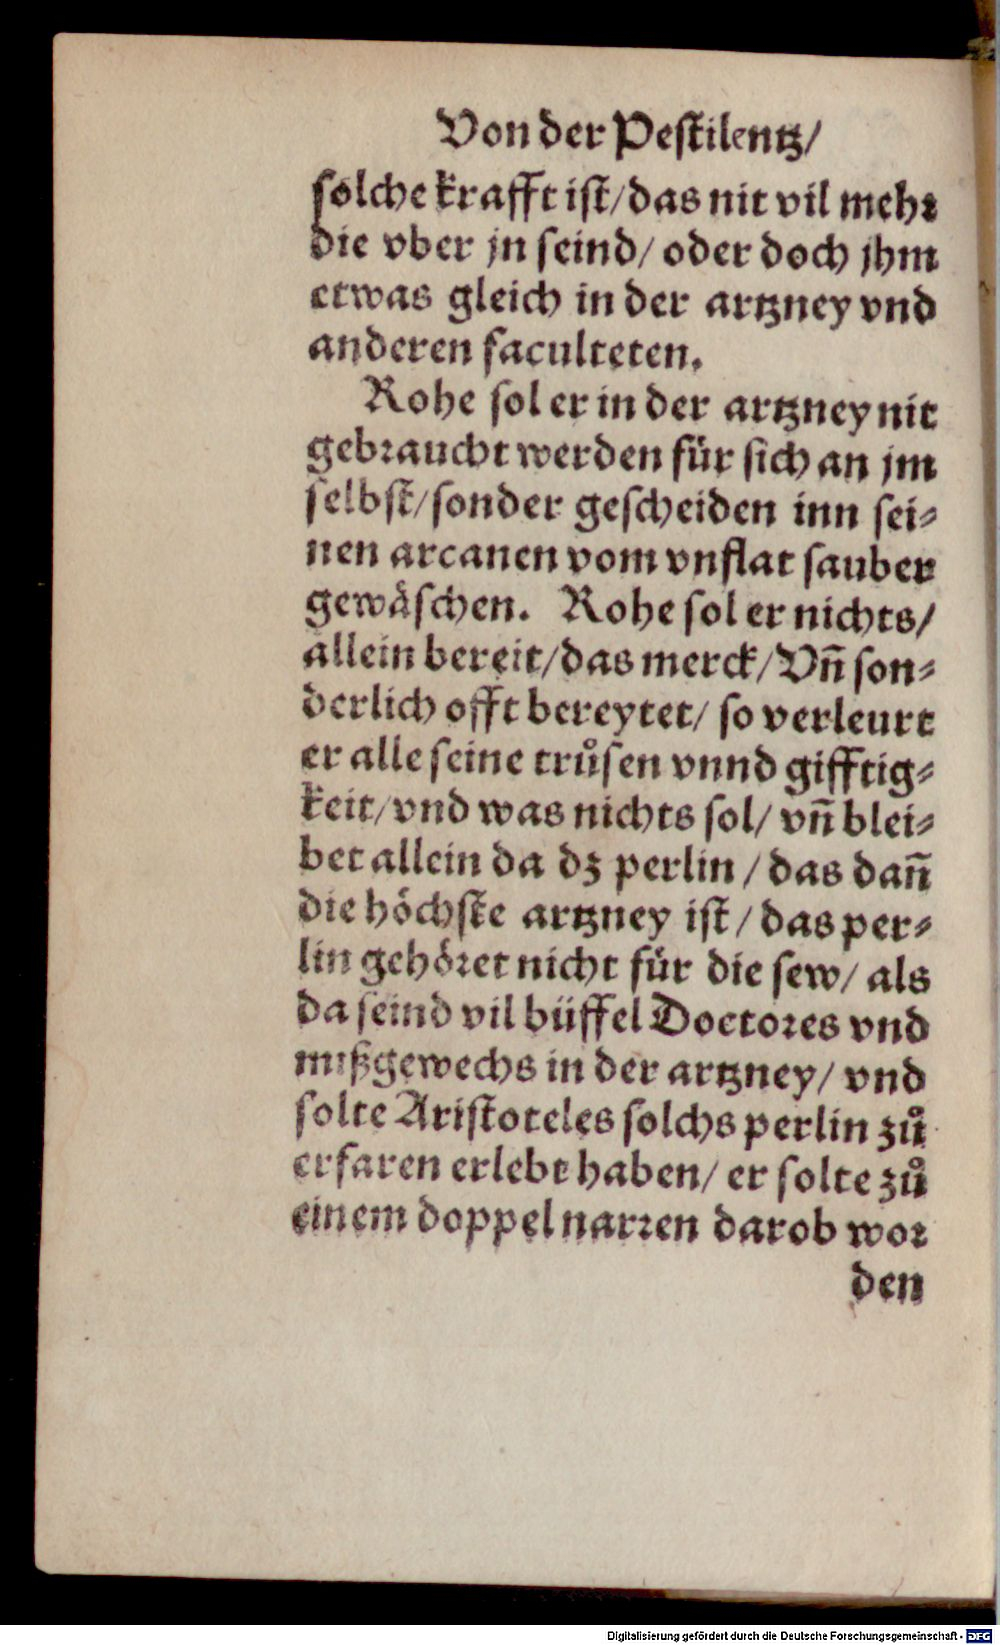 Von der Pestilentz/
solche krafft ist/das nit vil mehr
die vber jn seind/ oder doch jhm
etwas gleich in der artzney vnd
anderen faculteten.
Rohe sol er in der artzney nit
gebraucht werden für sich an jm
selbst/sonder gescheiden inn sei⸗
nen arcanen vom vnflat sauber
gewäschen. Rohe sol er nichts/
allein bereit/das merck/Vñ son⸗
derlich offt bereytet/ so verleurt
er alle seine trůsen vnnd gifftig⸗
keit/vnd was nichts sol/ vñ blei⸗
bet allein da dz perlin / das dañ
die höchste artzney ist / das per⸗
lin gehöret nicht für die sew/ als
da seind vil büffel Doctores vnd
mißgewechs in der artzney/ vnd
solte Aristoteles solchs perlin zů
erfaren erlebt haben/ er solte zů
einem doppel narren darob wor
den
Digitalisierung gefördert durch die Deutsche Forschungsgemeinschaft - DFG